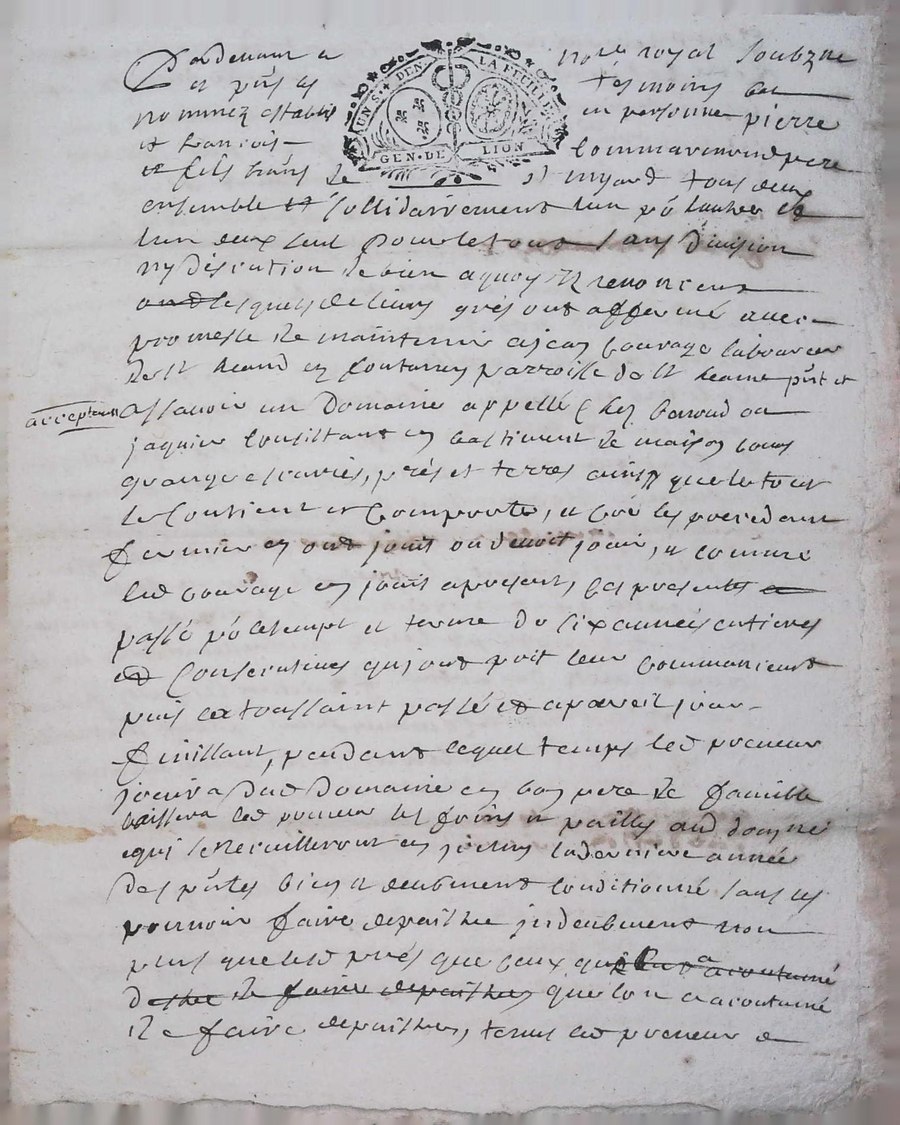 Pardevant le no.re royal soubzne
et pūs les tesmoins bas
nommez establis en personne pierre
et francois
et fils
ensemble et sollidairement lun pō lautre et
lun deux seul pour le tous sans division
ny discution de bien a quoy Ilz renoncent
lesquels de leurs grés ont affermé avec
promesse de maintenir a jean bourage laboureur
de st heand en fontanes parroisse de st heand pūt et
acceptant
assavoir un Domaine appellé chez
jaquier Consistant en bastiment de maison
granges escuries, prés et terres ainsy que le tout
se Contient et Comporte, et que les precedant
fermier en ont jouit ou deuoit jouir, et comme
led bourage en jouit apresent, les presentes
passé pō le temps et terme de six années entieres
et Consecutives qui ont prit leur commancement
puis la toussaint passé et a pareil jour
finissant, pendant lequel temps led preneur
jouira dud Domaine en bon pere de famille
laissera led preneur les foins et pailles aud domne
qui se recuilleront en jceluy la derniere année
des pūtes bien et deubment conditionné sans les
pouvoir faire depaistre indeubment non
plus que lesd prés que ceux qu a acoutumé
de faire depaistre que lon a acoutumé
de faire depaistre, tenus led preneur de
AUN S. DEN. LA FEUILLE
GEN. DE LION